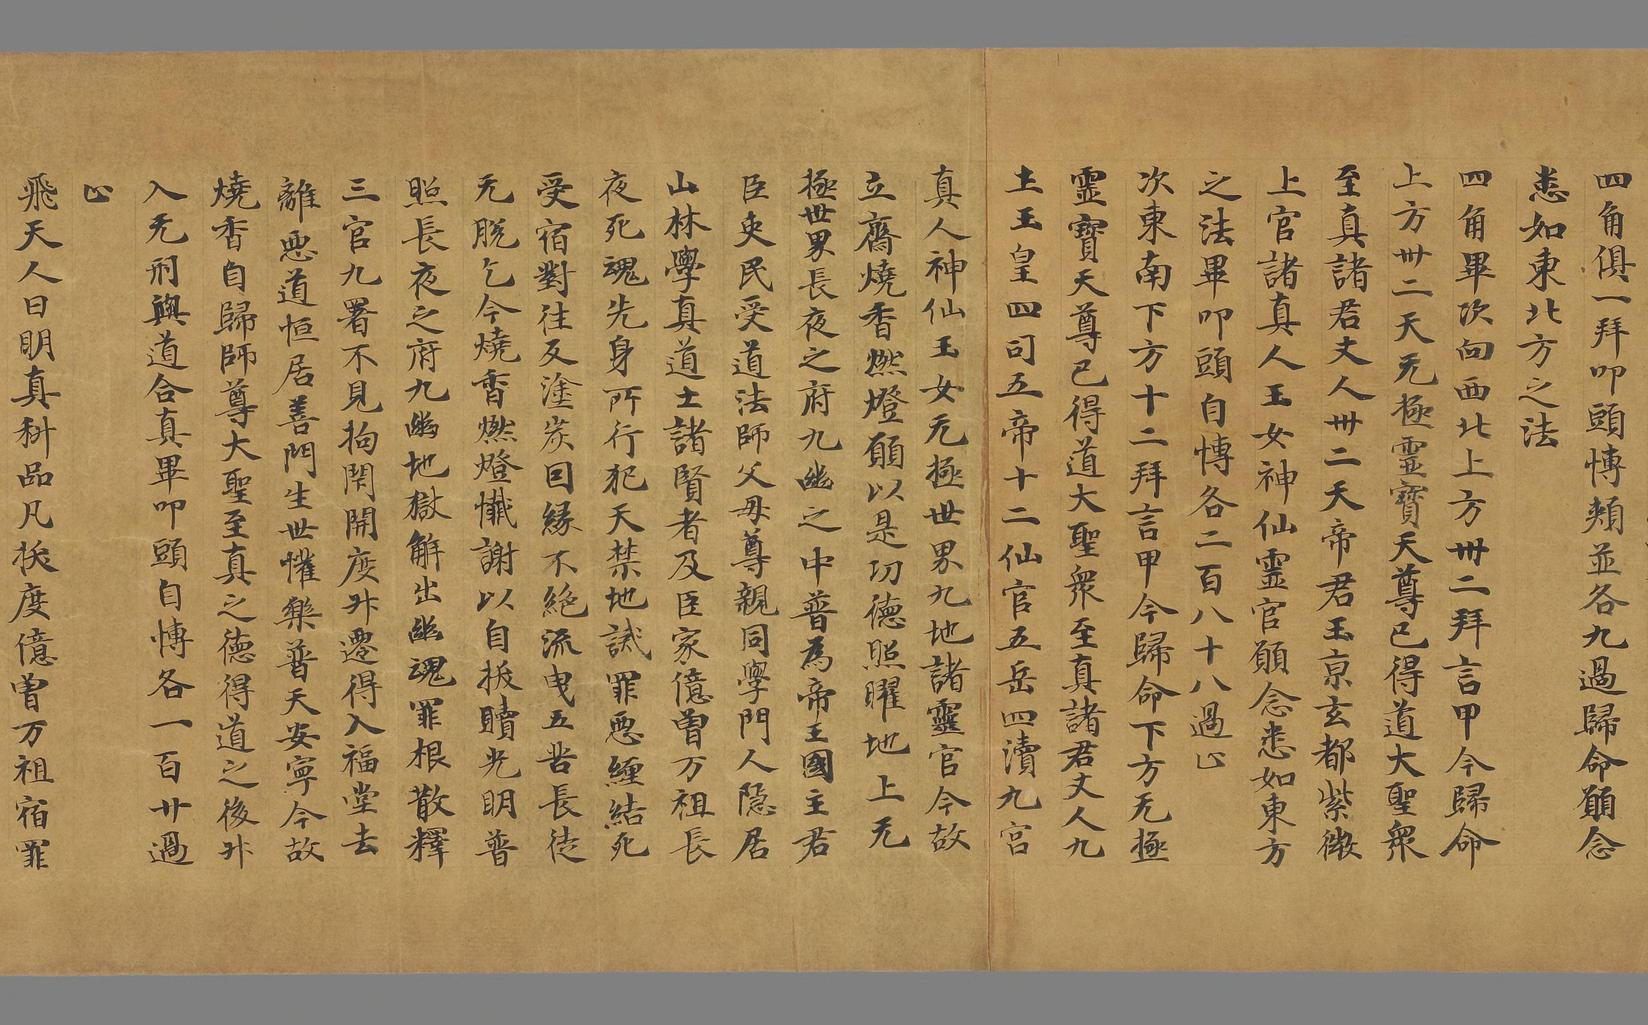 四角俱一拜叩頭愽頰並各九過歸命願念
悉如東北方之法
四角畢次向西北上方卅二拜言甲今歸命
上方卅二天无極靈寶天尊已得道大聖衆
至真諸君丈人卅二天帝君玉京玄都紫微
上官諸真人玉女神仙靈官願念悉如東方
之法畢叩頭自愽各二百八十八過止
次東南下方十二拜言甲今歸命下方无極
靈寶天尊已得道大聖衆至真諸君丈人九
土玉皇四司五帝十二仙官五岳四瀆九宫
真人神仙玉女无極世界九地諸靈官今故
立齋燒香燃燈願以是功德照曜地上无
極世界長夜之府九幽之中普為帝王國主君
臣吏民受道法師父母尊親同學門人隱居
山林學真道士諸賢者及臣家億曾万祖長
夜死魂先身所行犯天禁地誡罪惡纏結死
受宿對往反塗炭因緣不絕流曳五苦長徒
无脫乞今燒香燃燈懺謝以自拔贖光明普
照長夜之府九幽地獄解出幽魂罪根散釋
三官九署不見拘閇開度升遷得入福堂去
離惡道恒居善門生世懽樂普天安寧今故
燒香自歸師尊大聖至真之德得道之後升
入无形與道合真畢叩頭自愽各一百廿過
止
飛天人曰明真科品凡拔度億曾万祖宿罪